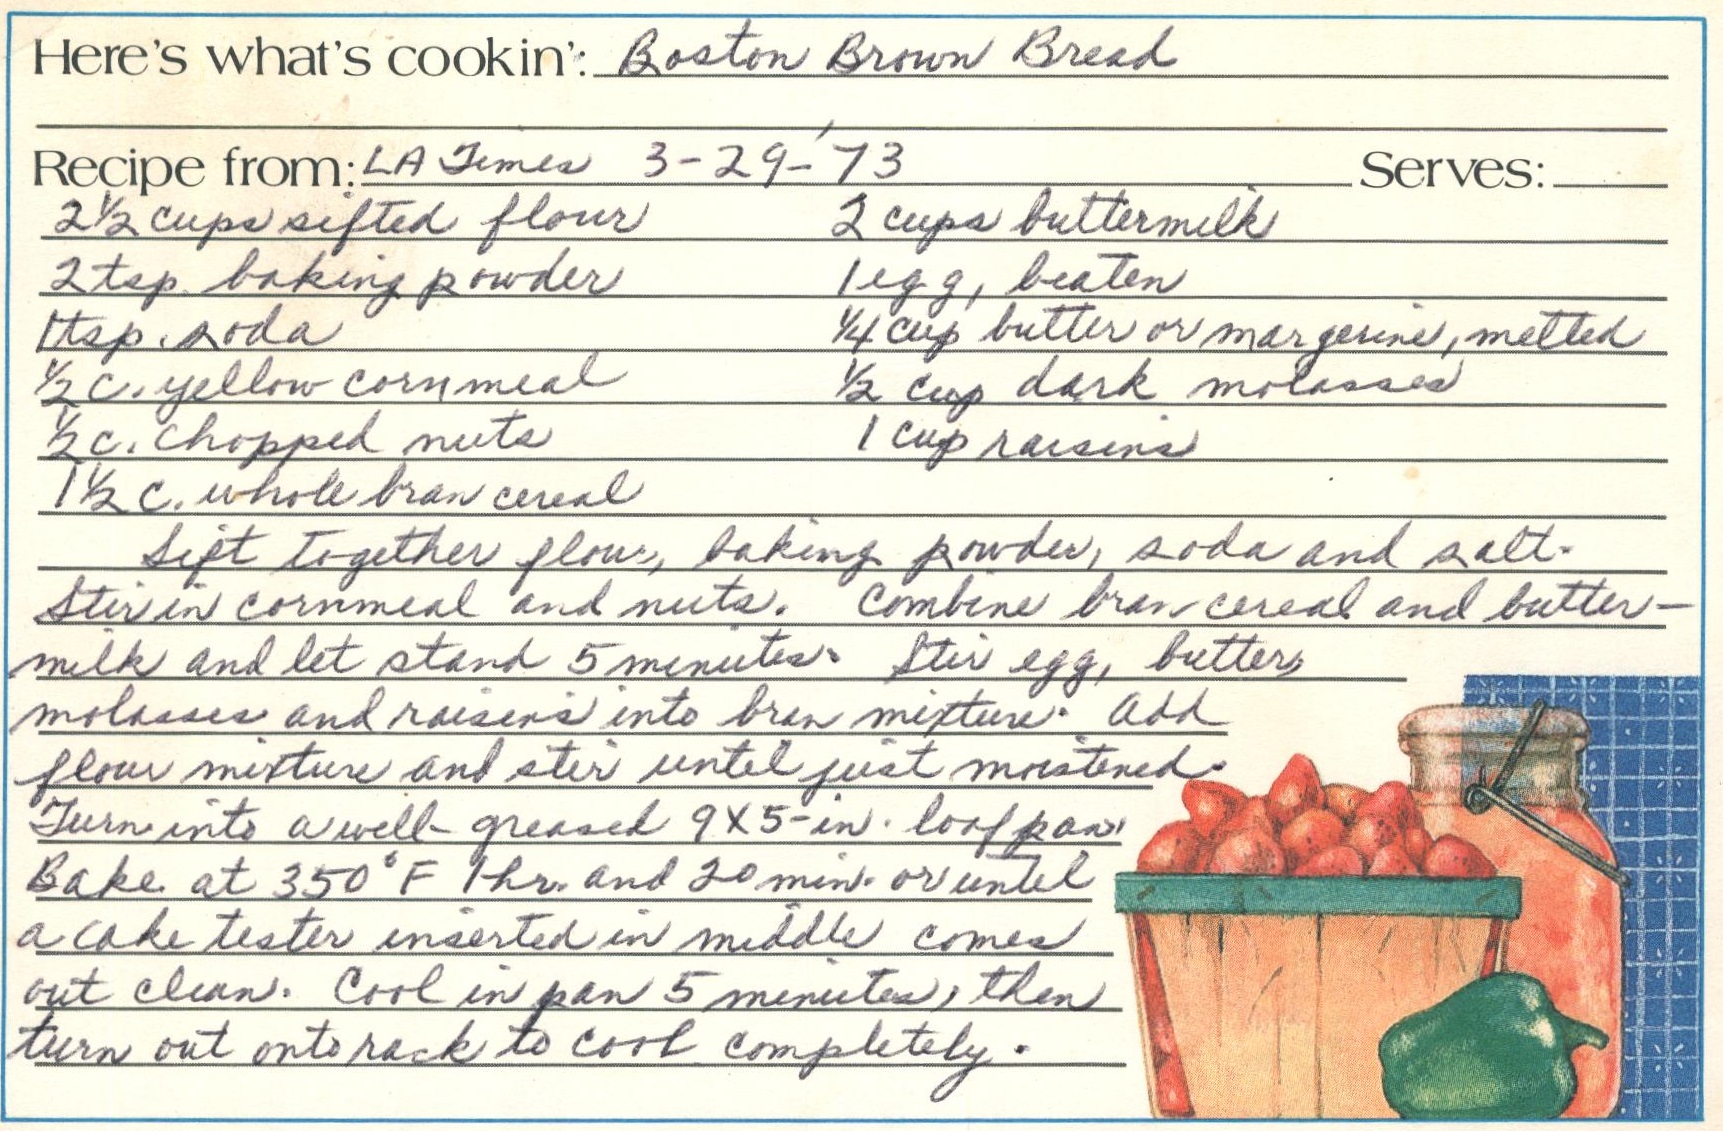 Here's what's cookin': Boston Brown Bread
Recipe from: LA Times 3-29-'73 Serves:
2 1/2 cups sifted flour 2 cups buttermilk
2 tsp. baking powder 1 egg, beaten
1 tsp. soda 1/4 cup butter or margerine, melted
1/2 c. yellow cornmeal 1/2 cup dark molasses
1/2 c. chopped nuts 1 cup raisins
1 1/2 c. whole bran cereal
Sift together flour, baking powder, soda and salt.
Stir in cornmeal and nuts. Combine bran cereal and butter-
milk and let stand 5 minutes. Stir egg, butter,
molasses and raisins into bran mixture. Add
flour mixture and stir until just moistened.
Turn into a well-greased 9X5-in. loaf pan.
Bake at 350°F 1 hr. and 20 min. or until
a cake tester inserted in middle comes
out clean. Cool in pan 5 minutes, then
turn out onto rack to cool completely.